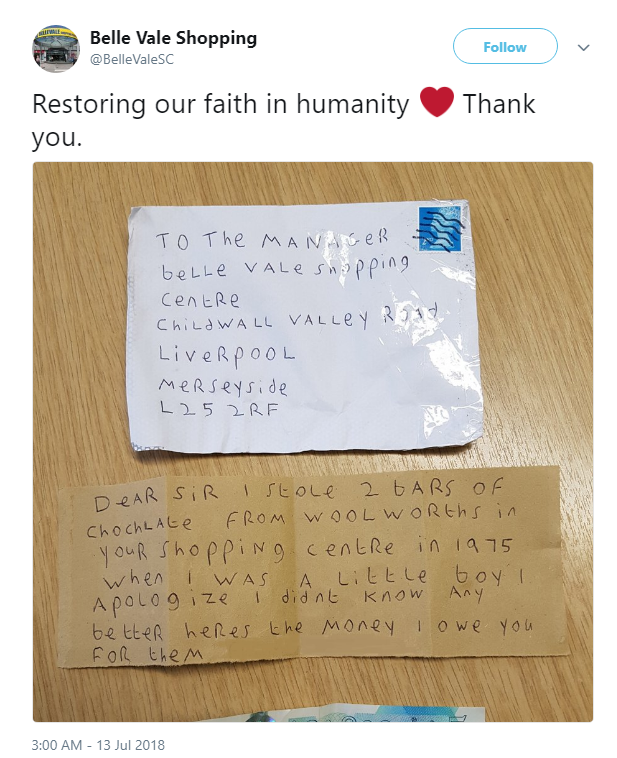 Belle Vale Shopping
@BelleValeSC
Follow
Restoring our faith in humanity ❤ Thank
you.
TO The MANAGeR
beLLe VALe shopping
CentRe
ChiLdWALL VALLey ROad
LiveRpooL
MeRseyside
L25 2RF
DeAR SiR I StoLe 2 bARS OF
ChochLAte FROM WOOLWORths in
youR shopping centRe in 1975
when I WAS A Little boy I
ApoLogize I didnt KNOW Any
betteR heRes the Money I owe you
FOR theM
3:00 AM - 13 Jul 2018